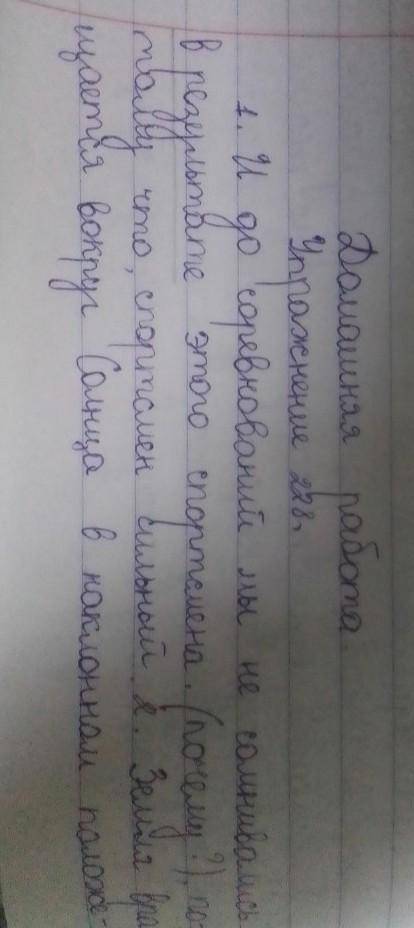 Домашняя работа.
Упражнение 228.
1. И до соревнований мы не сомнивались
в результате этого спортсмена. (почему?), по-
тому что, спортсмен сильный. 2. Земля вра-
щается вокруг Солнца в наклонном положе-